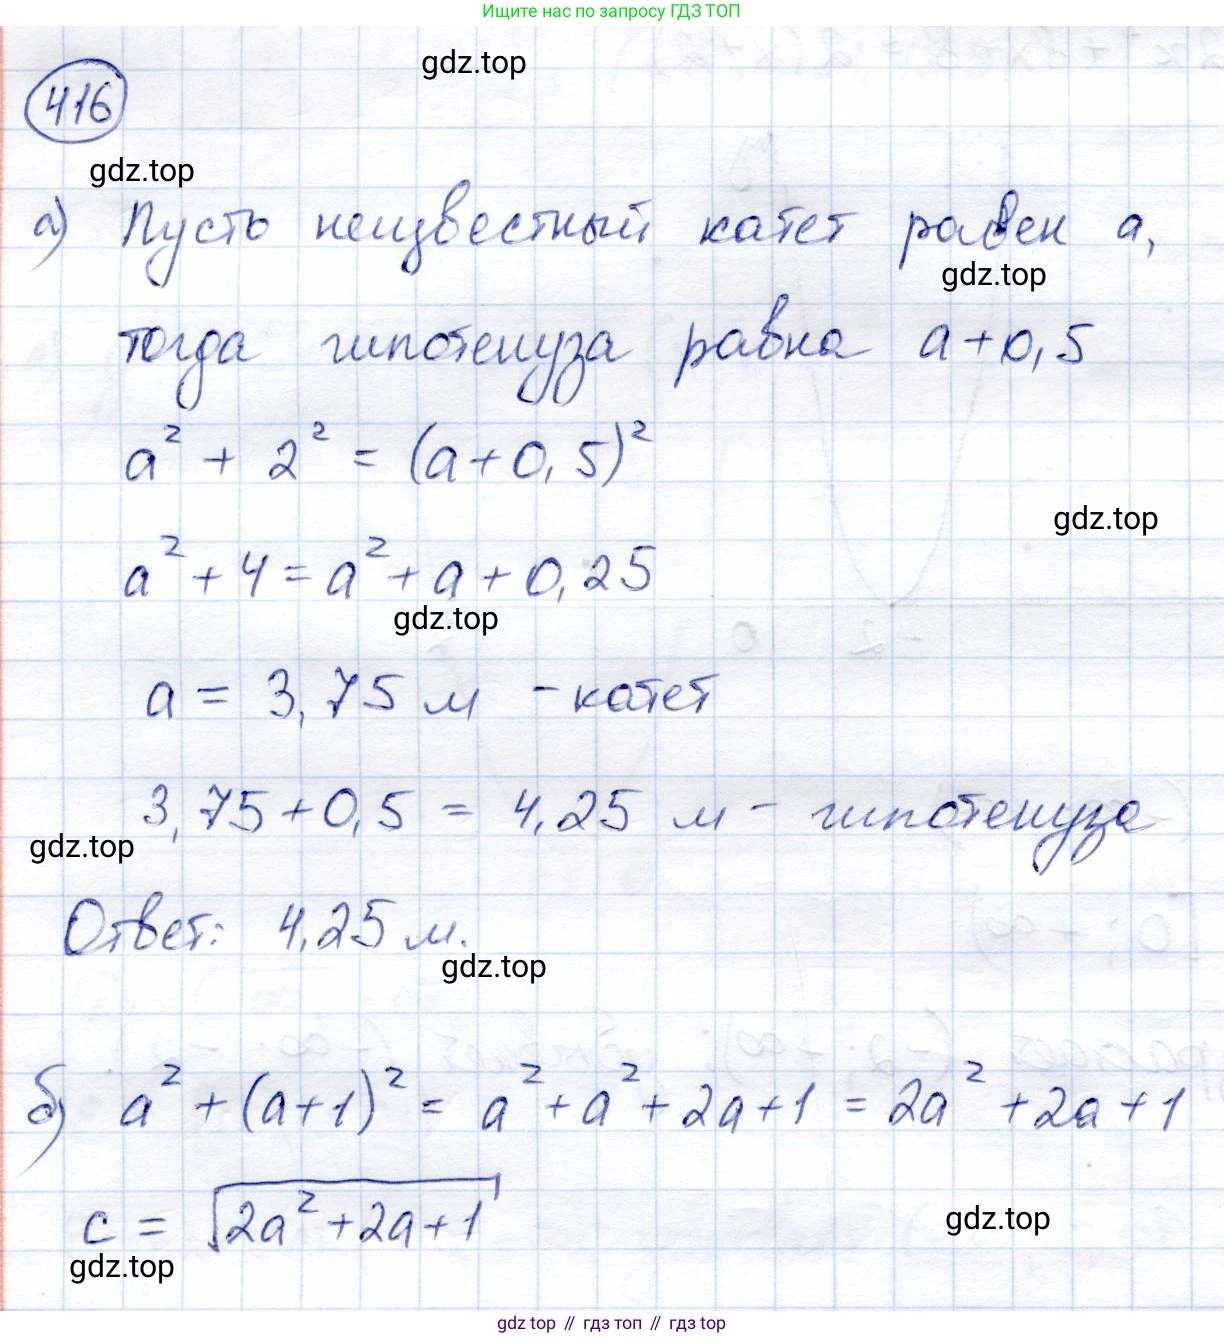 Ищите нас по запросу ГДЗ ТОП
gdz.top
416
gdz.top
а) Пусть неизвестный катет равен a,
gdz.top
тогда гипотенуза равна a+0,5
a² + 2² = (a+0,5)²
gdz.top
a² + 4 = a² + a + 0,25
gdz.top
a = 3,75 м - катет
3,75+0,5 = 4,25 м - гипотенуза
gdz.top
Ответ: 4,25 м.
gdz.top
б) a² + (a+1)² = a² + a² + 2a+1 = 2a² + 2a + 1
c = √(2a² + 2a + 1)
gdz.top
gdz.top
gdz top // гдз топ // гдз top